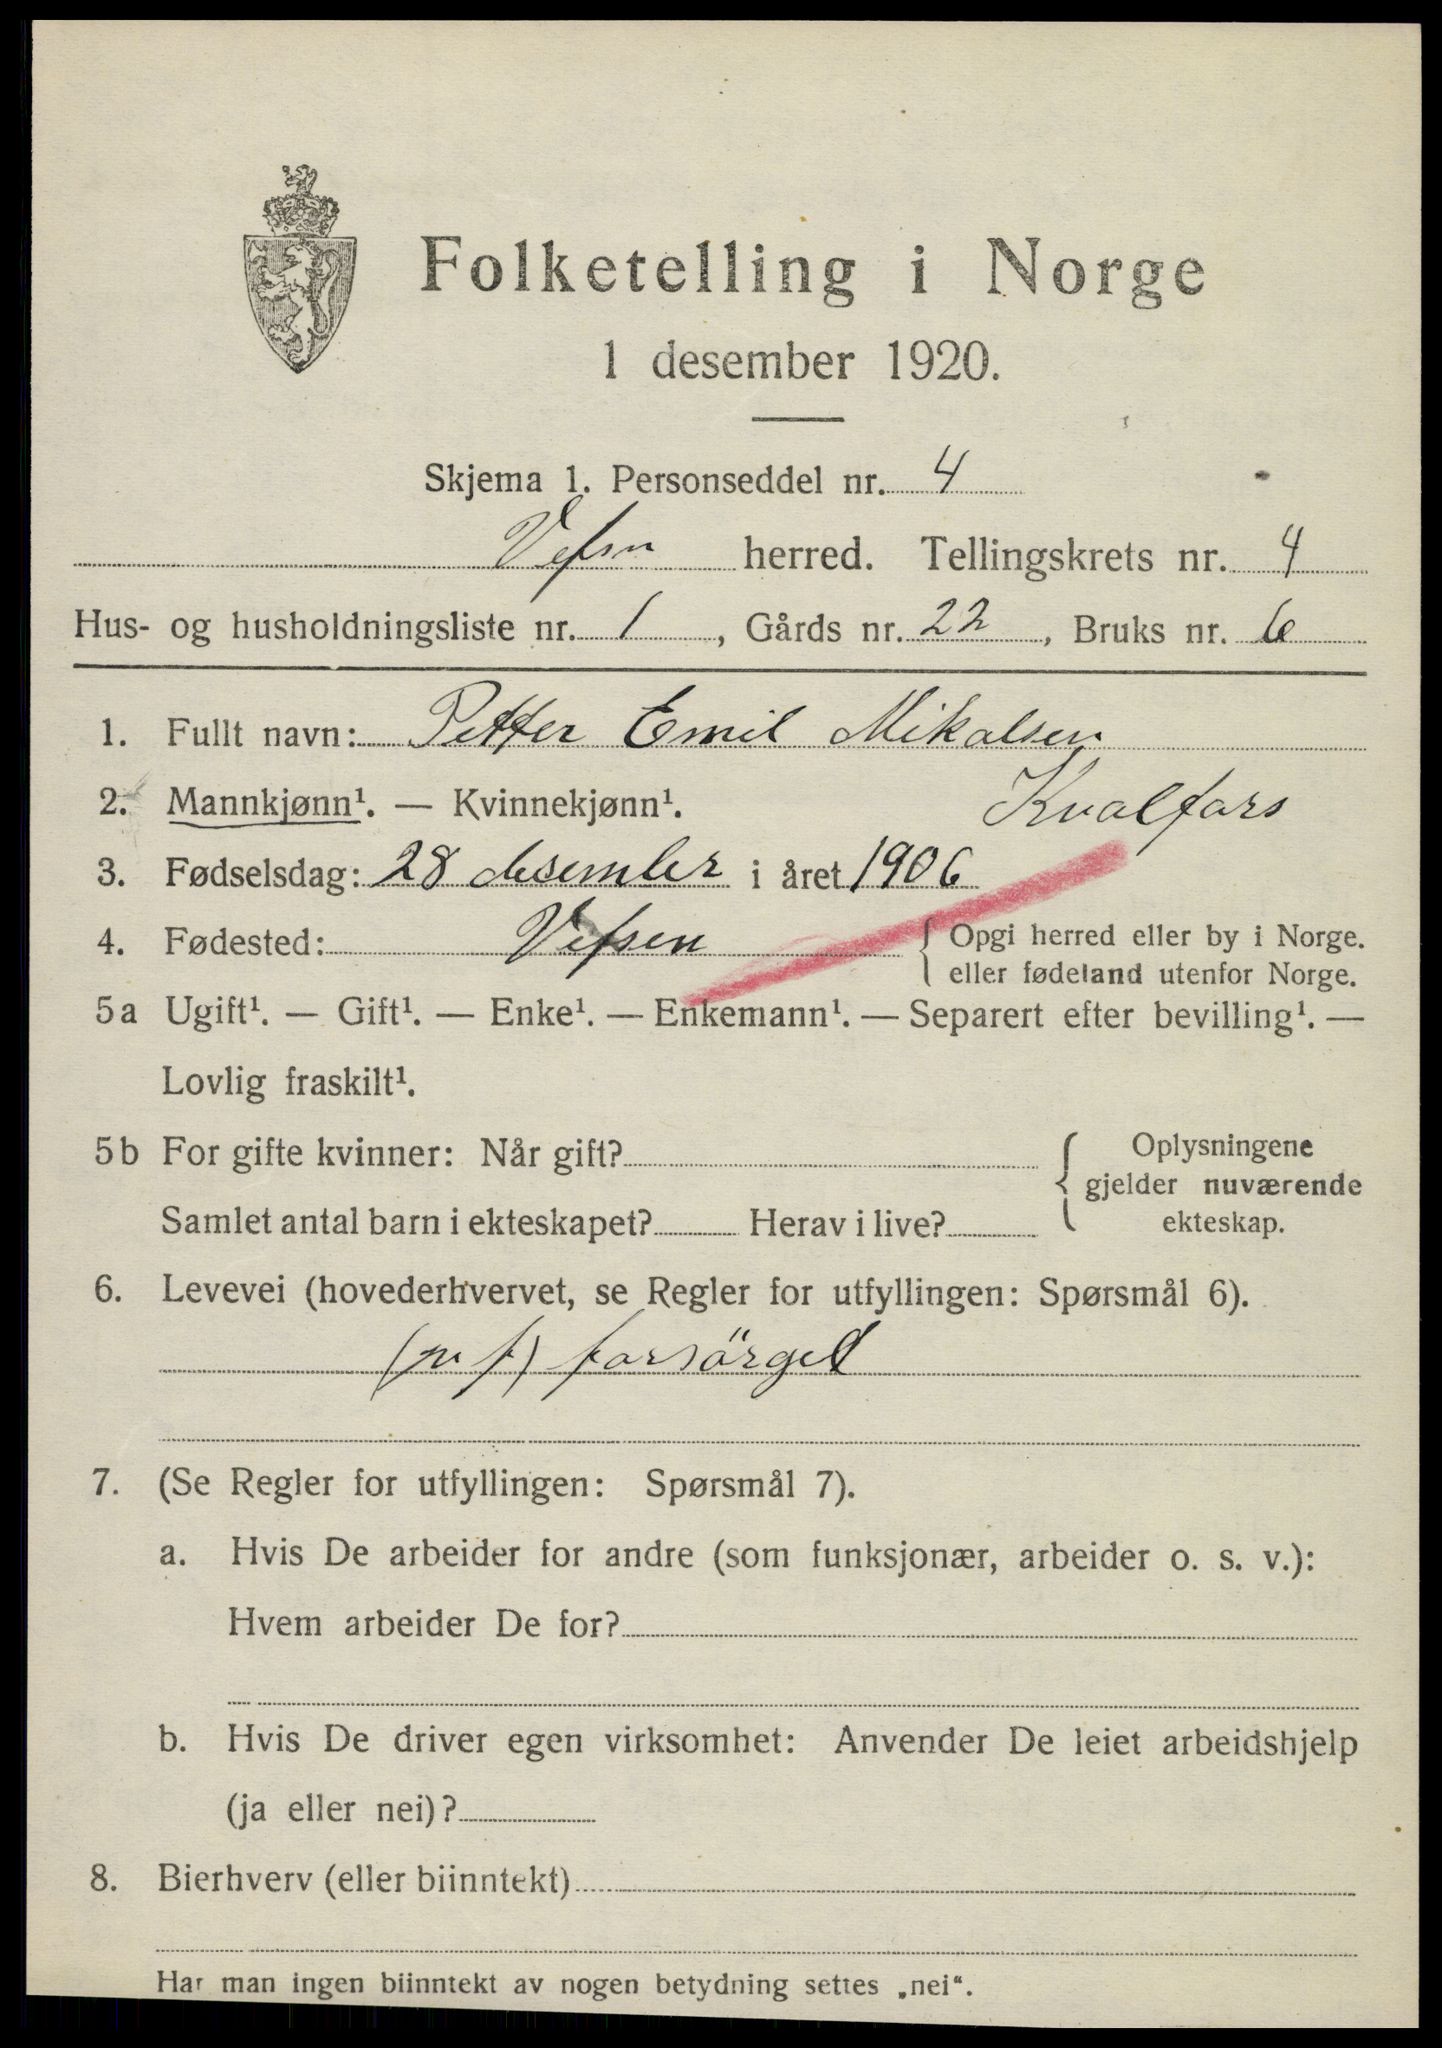 Folketelling i Norge
1 desember 1920.
Skjema 1. Personseddel nr. 4
Vefsn herred. Tellingskrets nr. 4
Hus- og husholdningsliste nr. 1, Gårds nr. 22, Bruks nr. 6
1. Fullt navn: Petter Emil Mikalsen
Kvalfors
2. Mannkjønn¹. — Kvinnekjønn¹.
3. Fødselsdag: 28 desember i året 1906
4. Fødested: Vefsen { Opgi herred eller by i Norge.
eller fødeland utenfor Norge.
5a Ugift¹. — Gift¹. — Enke¹. — Enkemann¹. — Separert efter bevilling¹. —
Lovlig fraskilt¹.
5b For gifte kvinner: Når gift? { Oplysningene
gjelder nuværende
Samlet antal barn i ekteskapet? Herav i live? ekteskap.
6. Levevei (hovederhvervet, se Regler for utfyllingen: Spørsmål 6).
(p f) forsörget
7. (Se Regler for utfyllingen: Spørsmål 7).
a. Hvis De arbeider for andre (som funksjonær, arbeider o. s. v.):
Hvem arbeider De for?
b. Hvis De driver egen virksomhet: Anvender De leiet arbeidshjelp
(ja eller nei)?
8. Bierhverv (eller biinntekt)
Har man ingen biinntekt av nogen betydning settes „nei“.